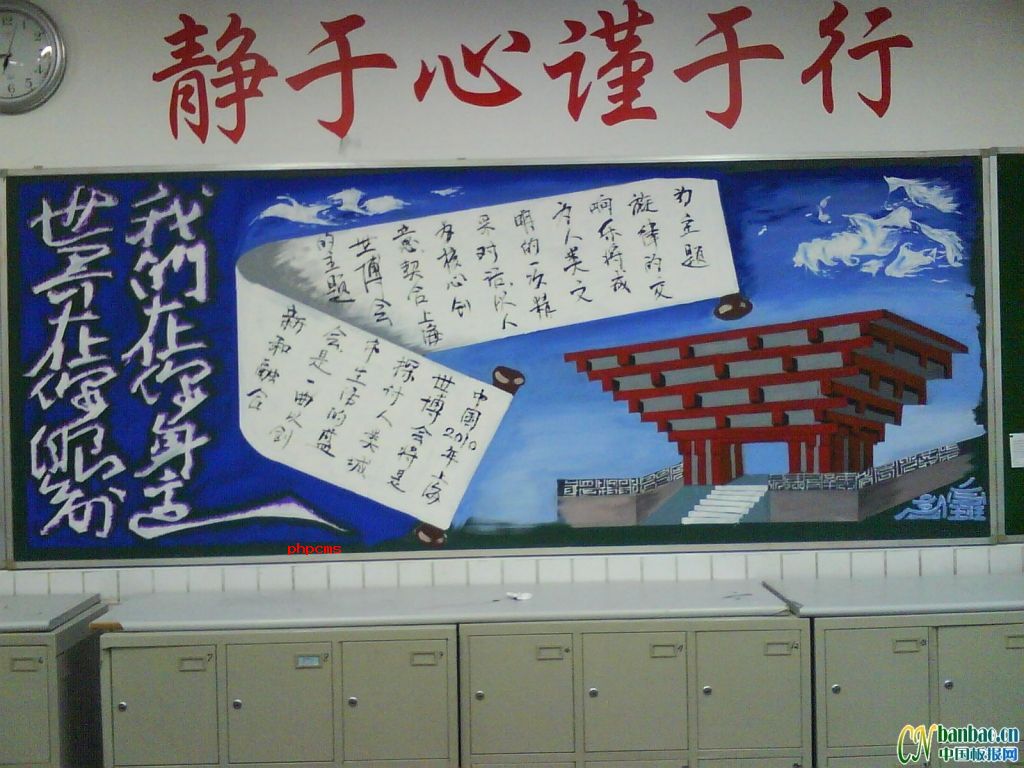 静于心谨于行
我們在你身边
世界在你眼前
中國2010年上海
世博会将是
探讨人类城
市生活的盛
会是一曲以创
新和融合
为主题
旋律的交
响乐将成
为人类文
明的一次精
采对话以人
为核心创
意契合上海
世博会
的主题
phpcms
CN banbao.cn
中国板报网